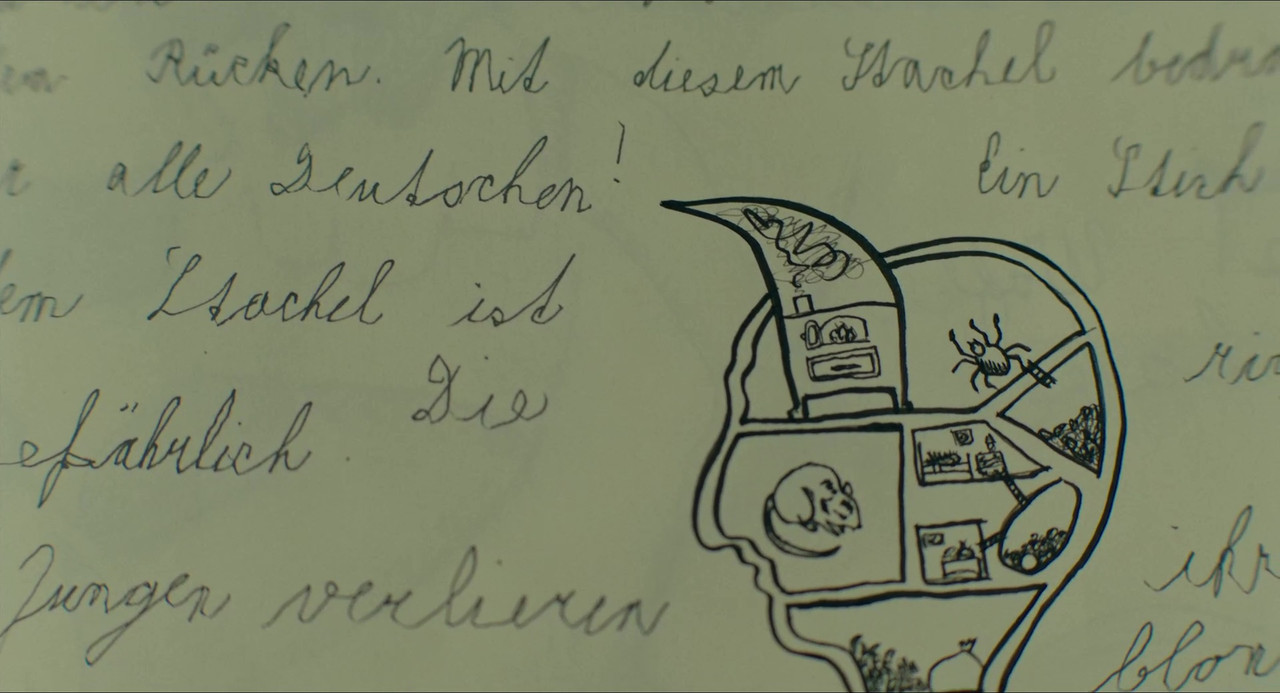 Rücken. Mit diesem Stachel
alle Deutschen! Ein Stich
Stachel ist
Die
efährlich.
Jungen verlieren ihr
blon